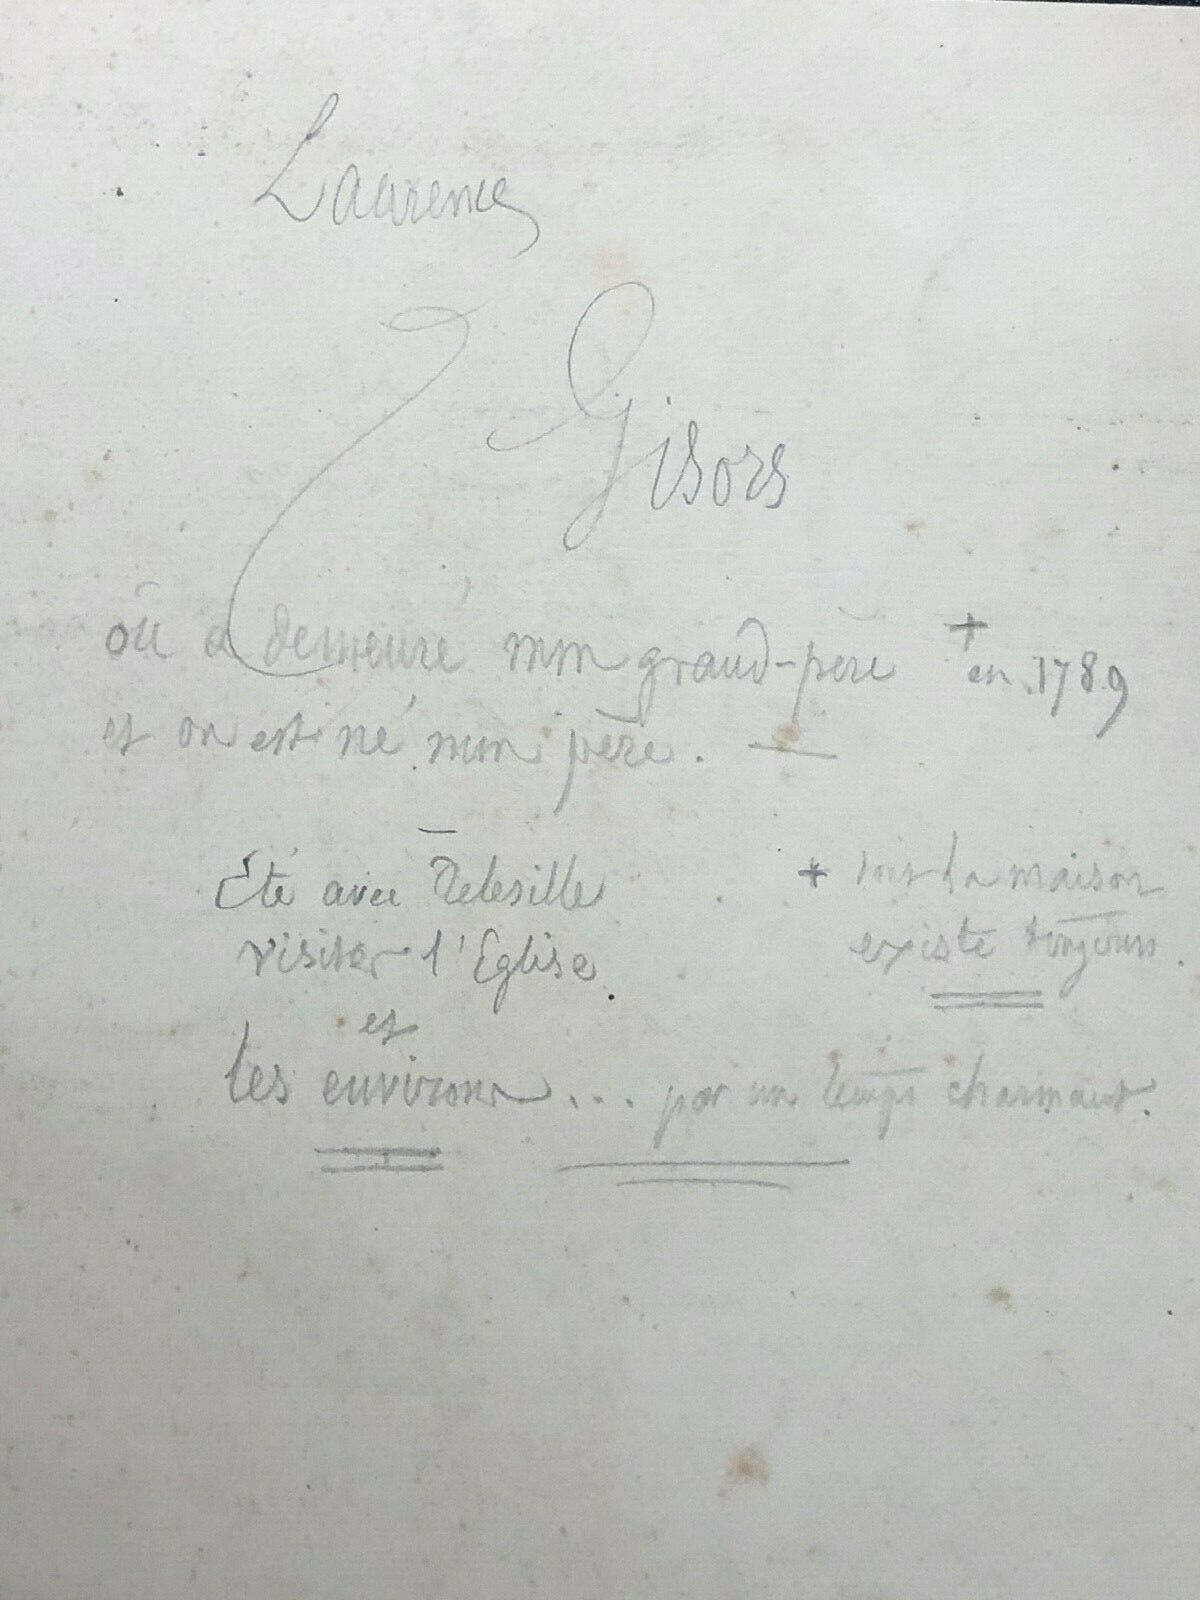 Laurence
Gisors
où a demeuré mon grand-père + en 1789
et où est né mon père. —
Été avec Telesille
visiter l'Eglise.
et
les environs... par un temps charmant.
+ dont la maison
existe toujours.